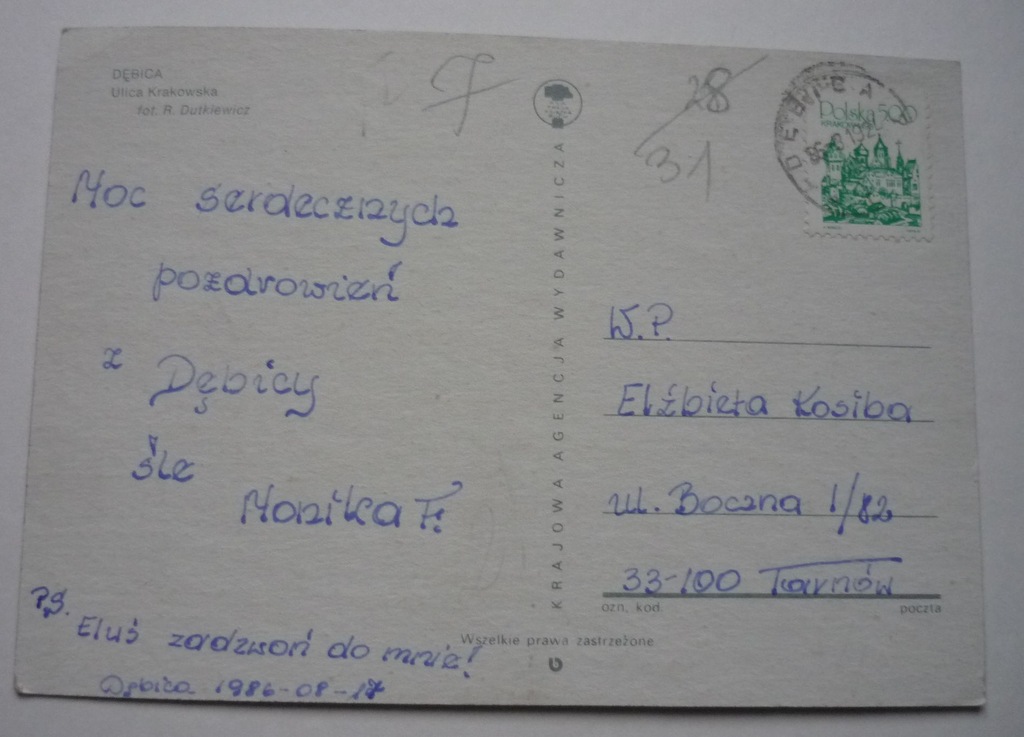 DĘBICA
Ulica Krakowska
fot. R. Dutkiewicz
7
28
31
DĘBICA
Polska 500
Moc serdecznych
pozdrowień
z Dębicy
śle
Monika F.
P.S.
Eluś zadzwoń do mnie!
Dębica 1986-08-17
KRAJOWA AGENCJA WYDAWNICZA
W.P.
Elżbieta Kosiba
ul. Boczna 1/82
33-100 Tarnów
ozn. kod. poczta
Wszelkie prawa zastrzeżone